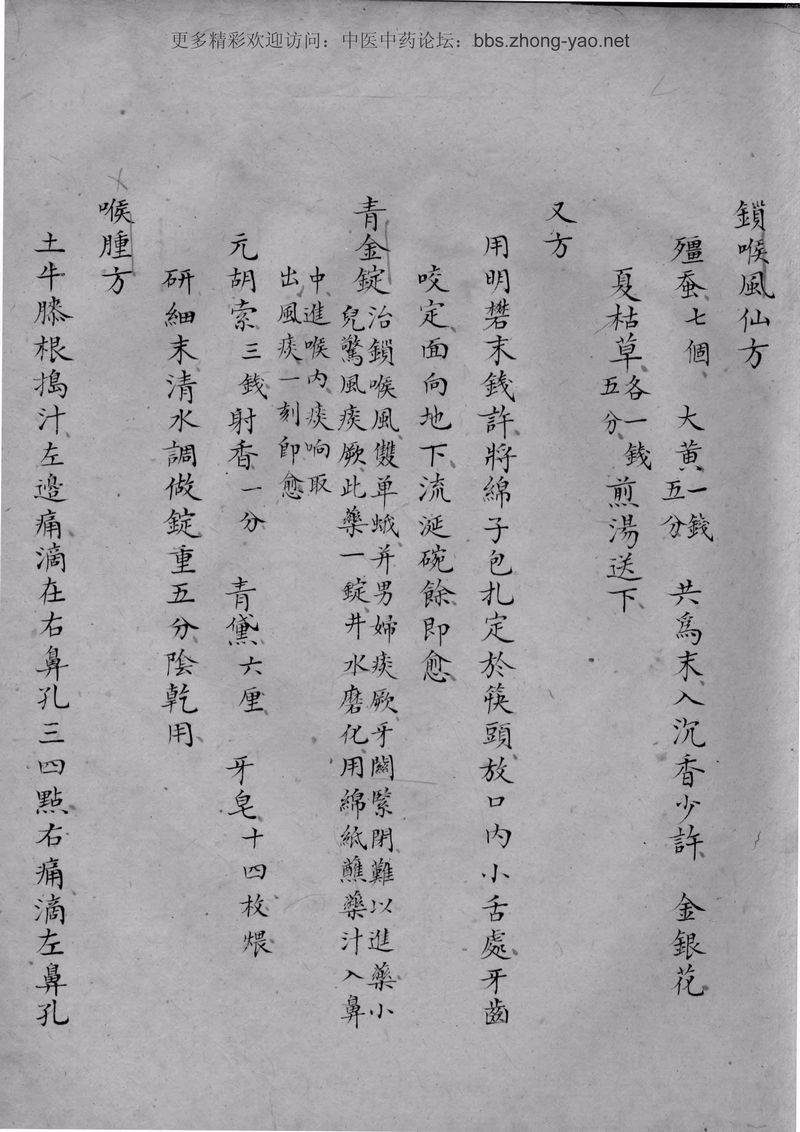 更多精彩欢迎访问：中医中药论坛：bbs.zhong-yao.net
鎖喉風仙方
殭蚕七個 大黃一錢五分 共爲末入沉香少許 金銀花
夏枯草各一錢五分 煎湯送下
又方
用明礬末錢許將綿子包扎定於筷頭放口内小舌處牙齒
咬定面向地下流涎碗餘即愈
青金錠治鎖喉風雙单蛾并男婦痰厥牙關緊閉難以進藥小
兒驚風痰厥此藥一錠井水磨化用綿紙蘸藥汁入鼻
中進喉内痰响取
出風痰一刻即愈
元胡索三錢射香一分 青黛六厘 牙皂十四枚煨
研細末清水調做錠重五分陰乾用
喉腫方
土牛膝根搗汁左邊痛滴在右鼻孔三四點右痛滴左鼻孔